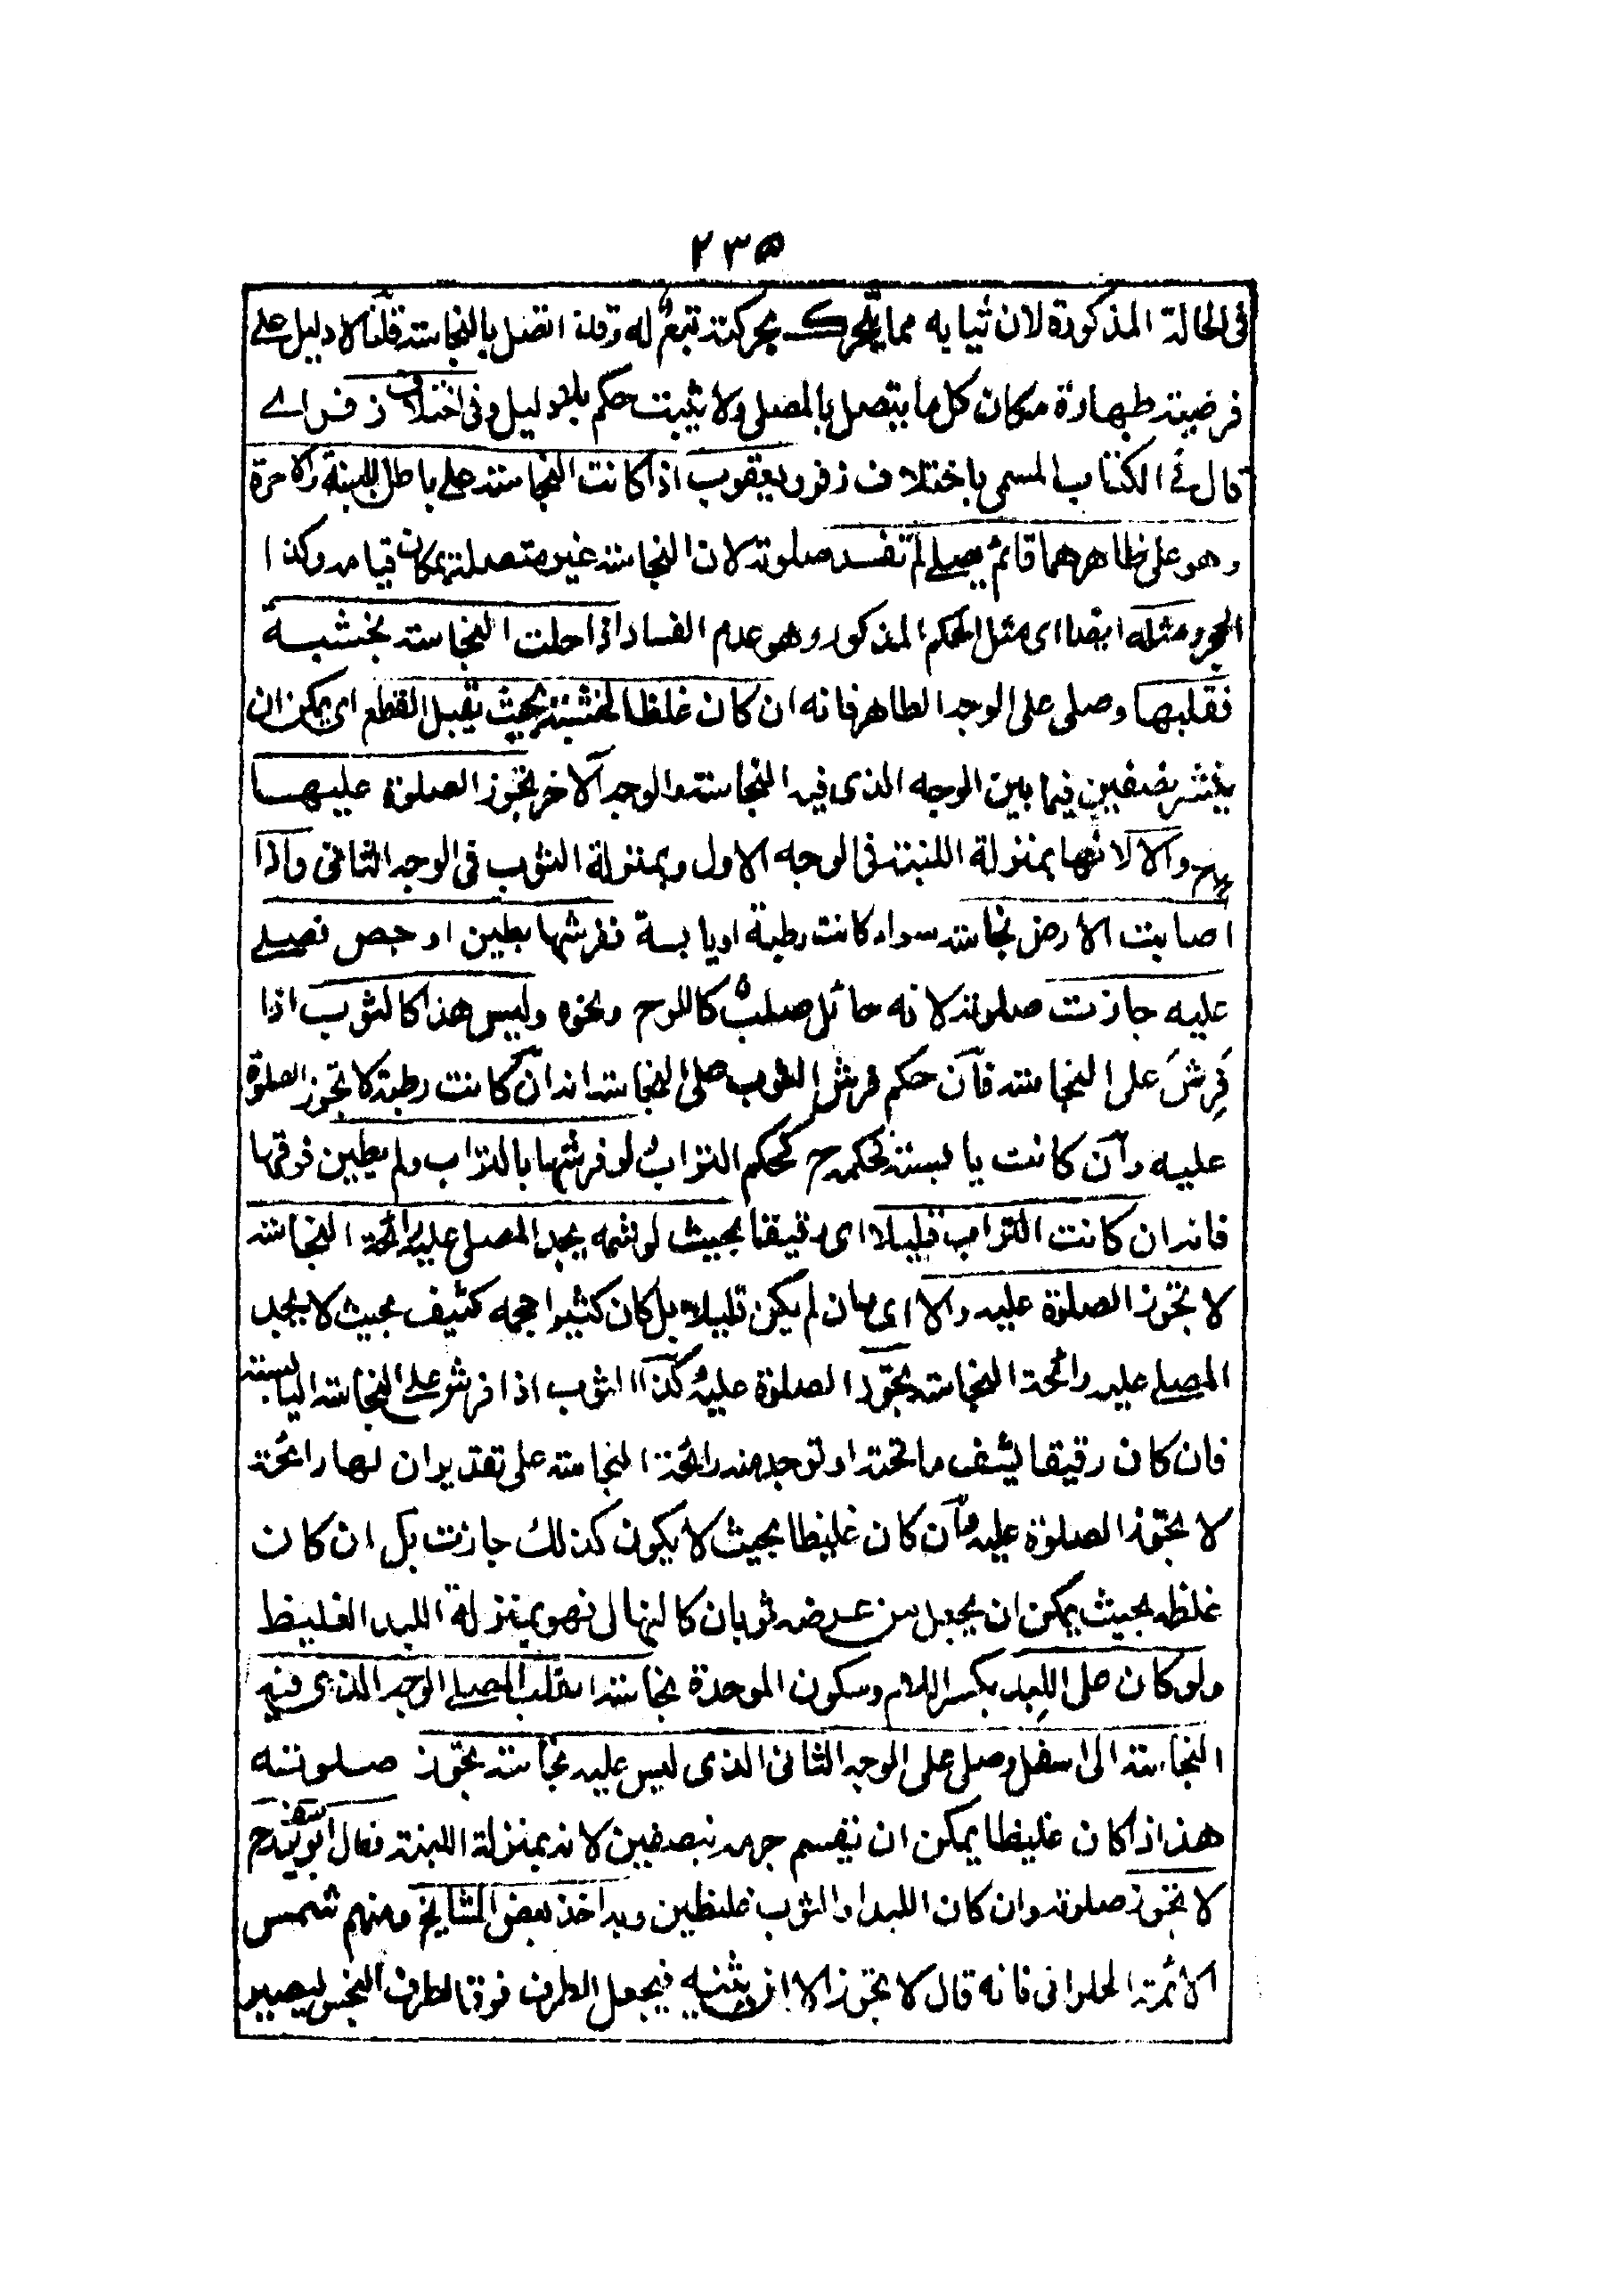 ٢٣٥
فى الحالة المذكورة لان ثيابه مما يتحرك بحركته تبعٌ له وقد اتصل بالنجاسة قلنا لا دليل على
فرضية طهارة مكان كل ما يتصل بالمصلى ولا يثبت حكم بلا دليل وفى اختلاف زفر اے
قال فى الكتاب المسمى باختلاف زفر ويعقوب اذا كانت النجاسة على باطن اللبنة والآجرة
وهو على ظاهرهما قائمٌ يصلے لم تفسد صلوته لان النجاسة غير متصلة بمكان قيامه وكذا
الحجر ومثله ايضا اى مثل الحكم المذكور وهو عدم الفساد اذا حلت النجاسة بخشبة
فقلبها وصلى على الوجه الطاهر فانه ان كان غلظ الخشبة بحيث تقبل القطع اى يمكن ان
ينشر نصفين فيما بين الوجه الذى فيه النجاسة والوجه الآخر تجوز الصلوة عليها
ح والا لا لانها بمنزلة اللبنة فى الوجه الاول وبمنزلة الثوب فى الوجه الثانى واذا
اصابت الارض نجاسة سواء كانت رطبة او يابسة ففرشها بطين او جص فصلے
عليه جازت صلوته لانه حائل صلبٌ كاللوح ونحوه وليس هذا كالثوب اذا
فُرِشَ على النجاسة فان حكم فرش الثوب على النجاسة انه ان كانت رطبة لا تجوز الصلوة
عليه وان كانت يابسة فحكمه ح كحكم التراب لو فرشها بالتراب ولم يطين فوقها
فانه ان كانت التراب قليلا اى رقيقا بحيث لو شمه يجد المصلى عليه رائحة النجاسة
لا تجوز الصلوة عليه والا اى وان لم يكن قليلا بل كان كثيرا حجمه كثيف بحيث لا يجد
المصلے عليه رائحة النجاسة تجوز الصلوة عليه كذا الثوب اذا فرش على النجاسة اليابسة
فان كان رقيقا يشف ما تحته او توجد منه رائحة النجاسة على تقدير ان لها رائحة
لا تجوز الصلوة عليه وان كان غليظا بحيث لا يكون كذلك جازت بل ان كان
غلظه بحيث يمكن ان يجعل من عرضه ثوبان كالنهالى فهو بمنزلة اللبد الغليظ
ولو كان على اللِبد بكسر اللام وسكون الموحدة نجاسة فقلب المصلے الوجه الذى فيه
النجاسة الى اسفل وصلى على الوجه الثانى الذى ليس عليه نجاسة تجوز صلوته
هذا اذا كان غليظا يمكن ان ينقسم جرمه نصفين لانه بمنزلة اللبنة وقال ابو يوسف رح
لا تجوز صلوته وان كان اللبد او الثوب غليظين وبه اخذ بعض المشايخ ومنهم شمس
الائمة الحلوانى فانه قال لا تجوز الا ان يثنيه فيجعل الطرف فوق الطرف النجس ليصير